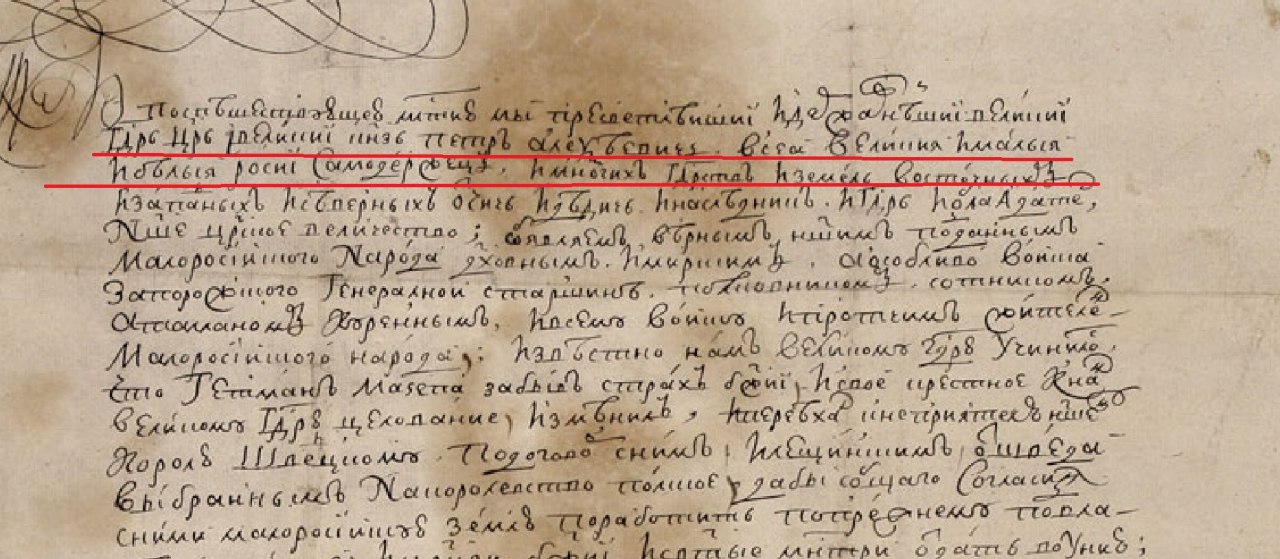 Поспѣшествующею млтию мы пресвѣтлѣйшиі и державнѣйшиі великиі
Гдрь Црь и великиі кнзь петръ алеѯѣевичь. всеа великия и малыя
и бѣлыя росиі Самодержецъ, и многихъ Гдрствъ и земель восточныхъ
и западныхъ и сѣверныхъ отичь и дѣдичь и наслѣдникъ. и Гдрь и облаадатель,
Нше црское величество; объявляемъ, вѣрнымъ ншимъ подданнымъ
Малоросиіского Народа дховнымъ. и мирскимъ, а особливо воиска
Запорожского Генералноі старшинѣ. полковникомъ, сотникомъ,
атаманомъ куреннымъ, и всему воиску и протчимъ жителе-
Малоросиіского народа; Извѣстно намъ великому Гдрю учинило,
что Гетманъ Мазепа забывъ страхъ бжиі, и свое крестное
великому Гдрю целование, измѣнилъ, и переѣхал к неприятелю ншему
Королю Шведцкому. По договору с нимъ и Лещинскимъ, от шведа
выбраннымъ На королевство полское, дабы со общаго Согласия
с ними малоросиіскую землю поработить попрежнему под вла-